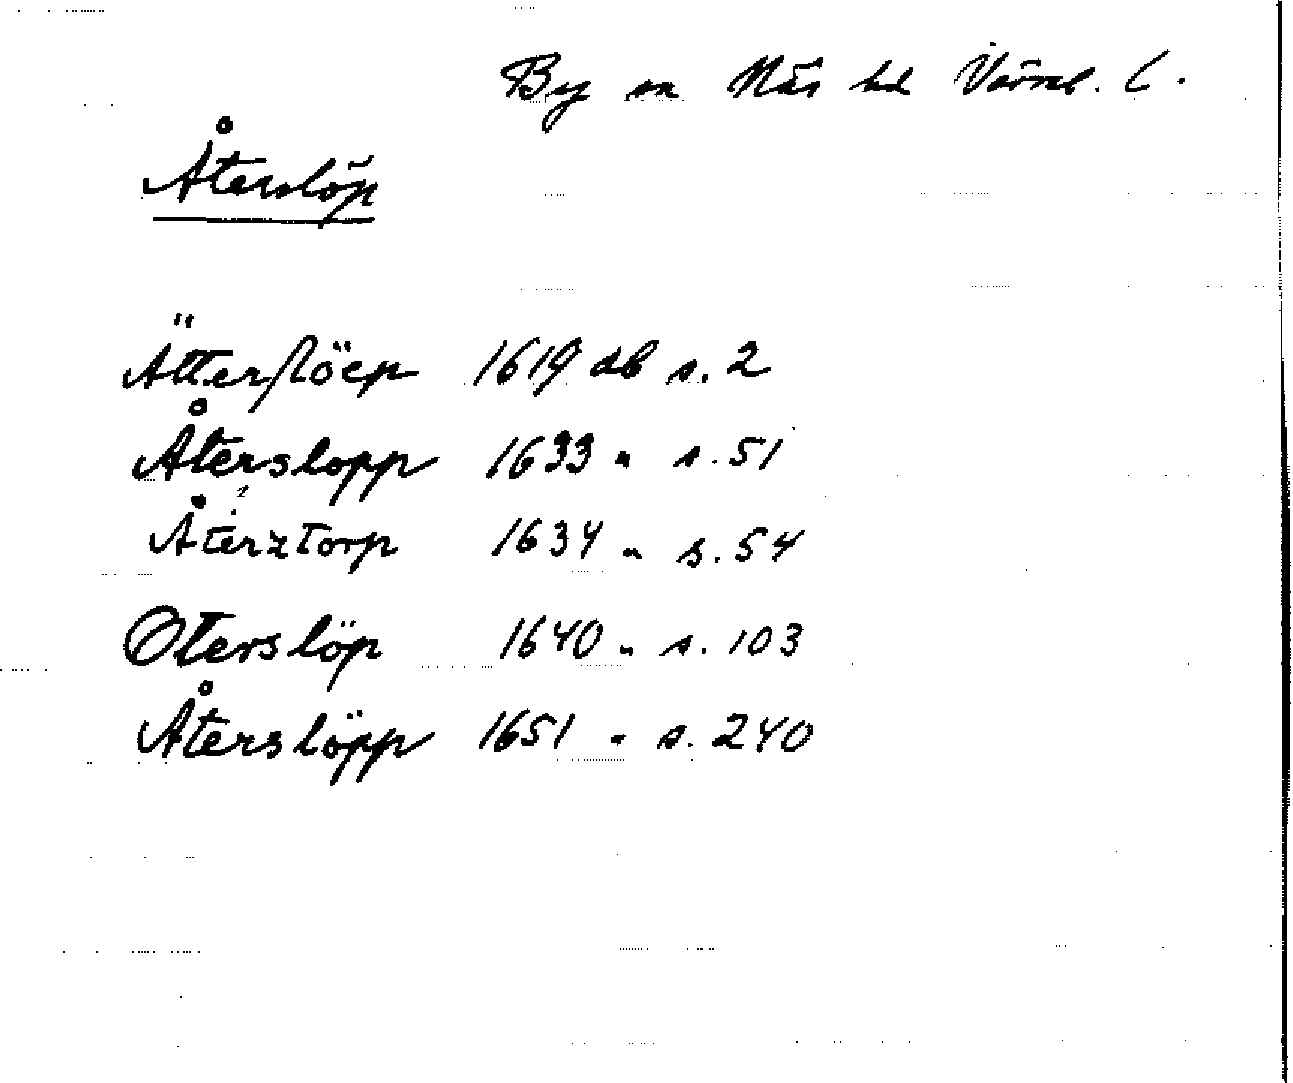 By sn Näs hd Värml. l.
Återslöp
Ätterslöep 1619 db s. 2
Återslopp 1633 " s. 51
Återztorp 1634 " s. 54
Oterslöp 1640 " s. 103
Återslöpp 1651 " s. 240